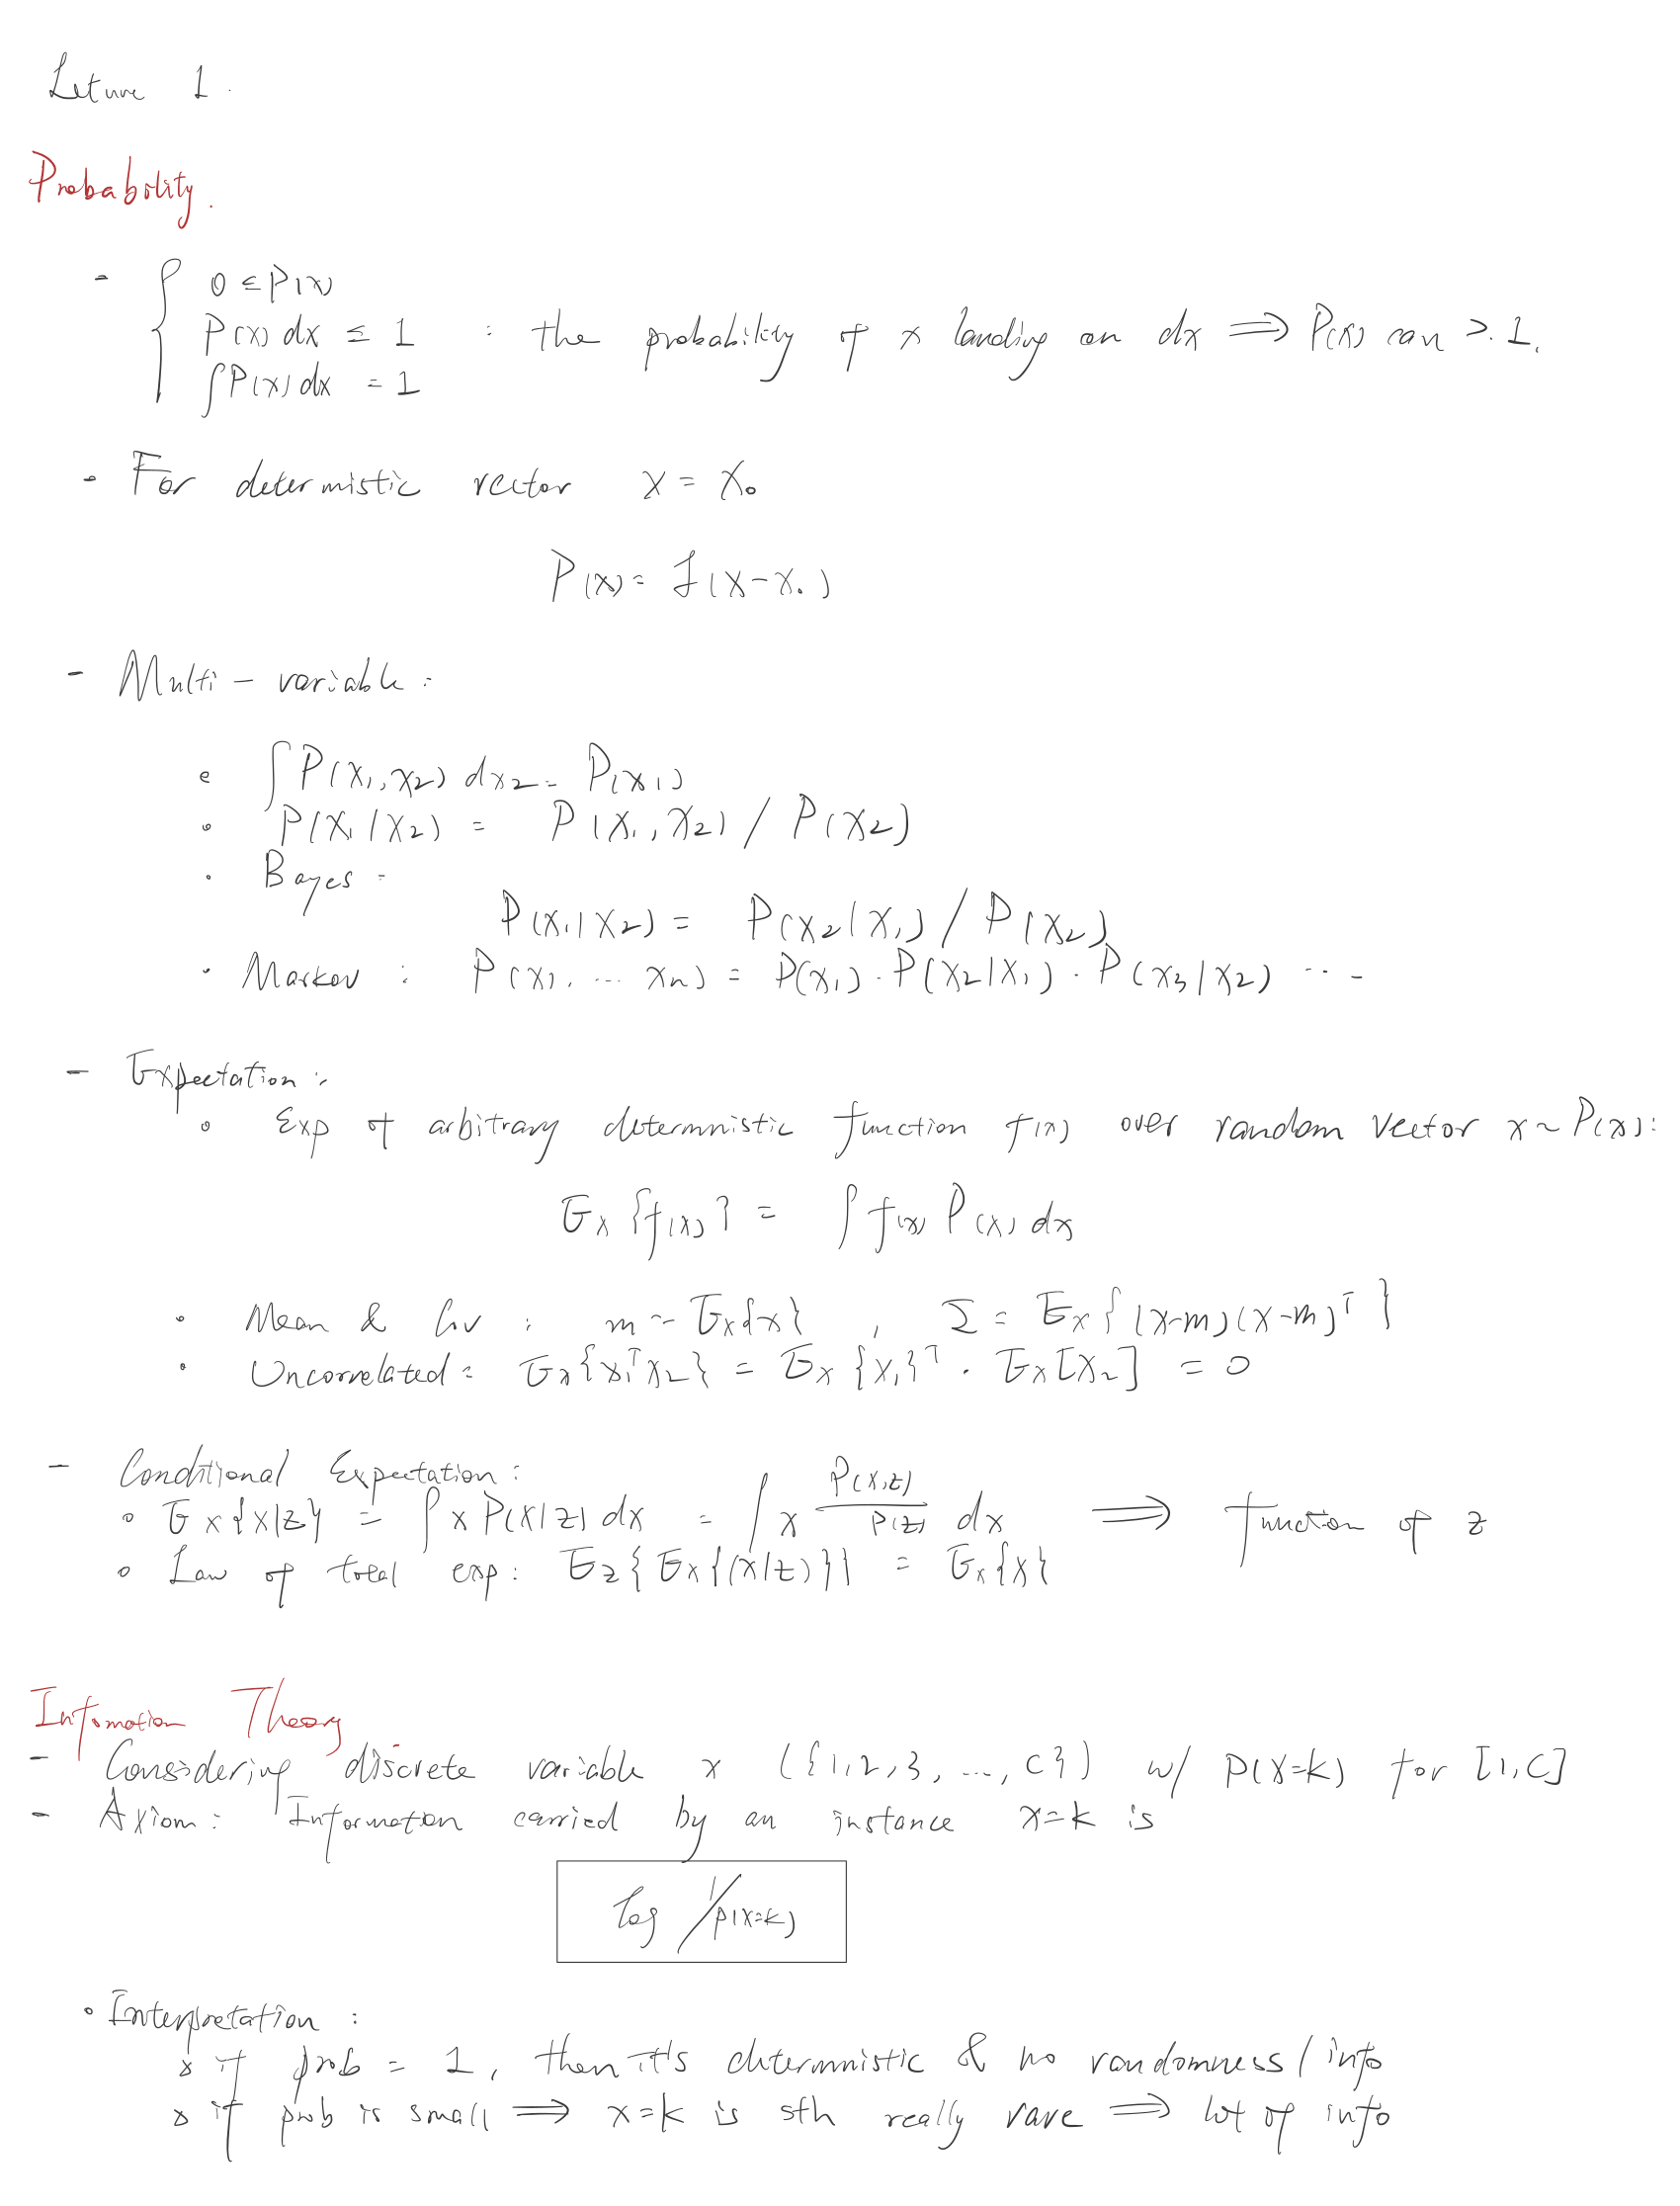 Leture 1.
Probability.
- { 0 ≤ P(x)
P(x) dx ≤ 1 : the probability of x landing on dx ⟹ P(x) can > 1.
∫ P(x) dx = 1
- For determistic vector x = x₀
P(x) = δ(x - x₀)
- Multi - variable :
∘ ∫ P(x₁, x₂) dx₂ = P(x₁)
∘ P(x₁ | x₂) = P(x₁, x₂) / P(x₂)
· Bayes :
P(x₁ | x₂) = P(x₂ | x₁) / P(x₂)
· Markov : P(x₁, ... xₙ) = P(x₁) · P(x₂ | x₁) · P(x₃ | x₂) ...
- Expectation :
∘ Exp of arbitrary determnistic function f(x) over random vector x ~ P(x) :
Eₓ {f(x)} = ∫ f(x) P(x) dx
∘ Mean & Cov : m = Eₓ{x} , Σ = Eₓ{(x-m)(x-m)ᵀ}
∘ Uncorrelated : Eₓ{x₁ᵀx₂} = Eₓ{x₁}ᵀ · Eₓ[x₂] = 0
- Conditional Expectation :
∘ Eₓ{x|z} = ∫ x P(x|z) dx = ∫ x P(x,z) / P(z) dx ⟹ function of z
∘ Law of total exp : E_z{Eₓ{(x|z)}} = Eₓ{x}
Infomation Theory
- Considering discrete variable x ({1,2,3, ..., C}) w/ P(X=k) for [1,C]
- Axiom : Information carried by an instance x=k is
log 1/P(X=k)
∘ Interpretation :
× if prob = 1, then it's determnistic & no randomness / info
× if prob is small ⟹ x=k is sth really rare ⟹ lot of info